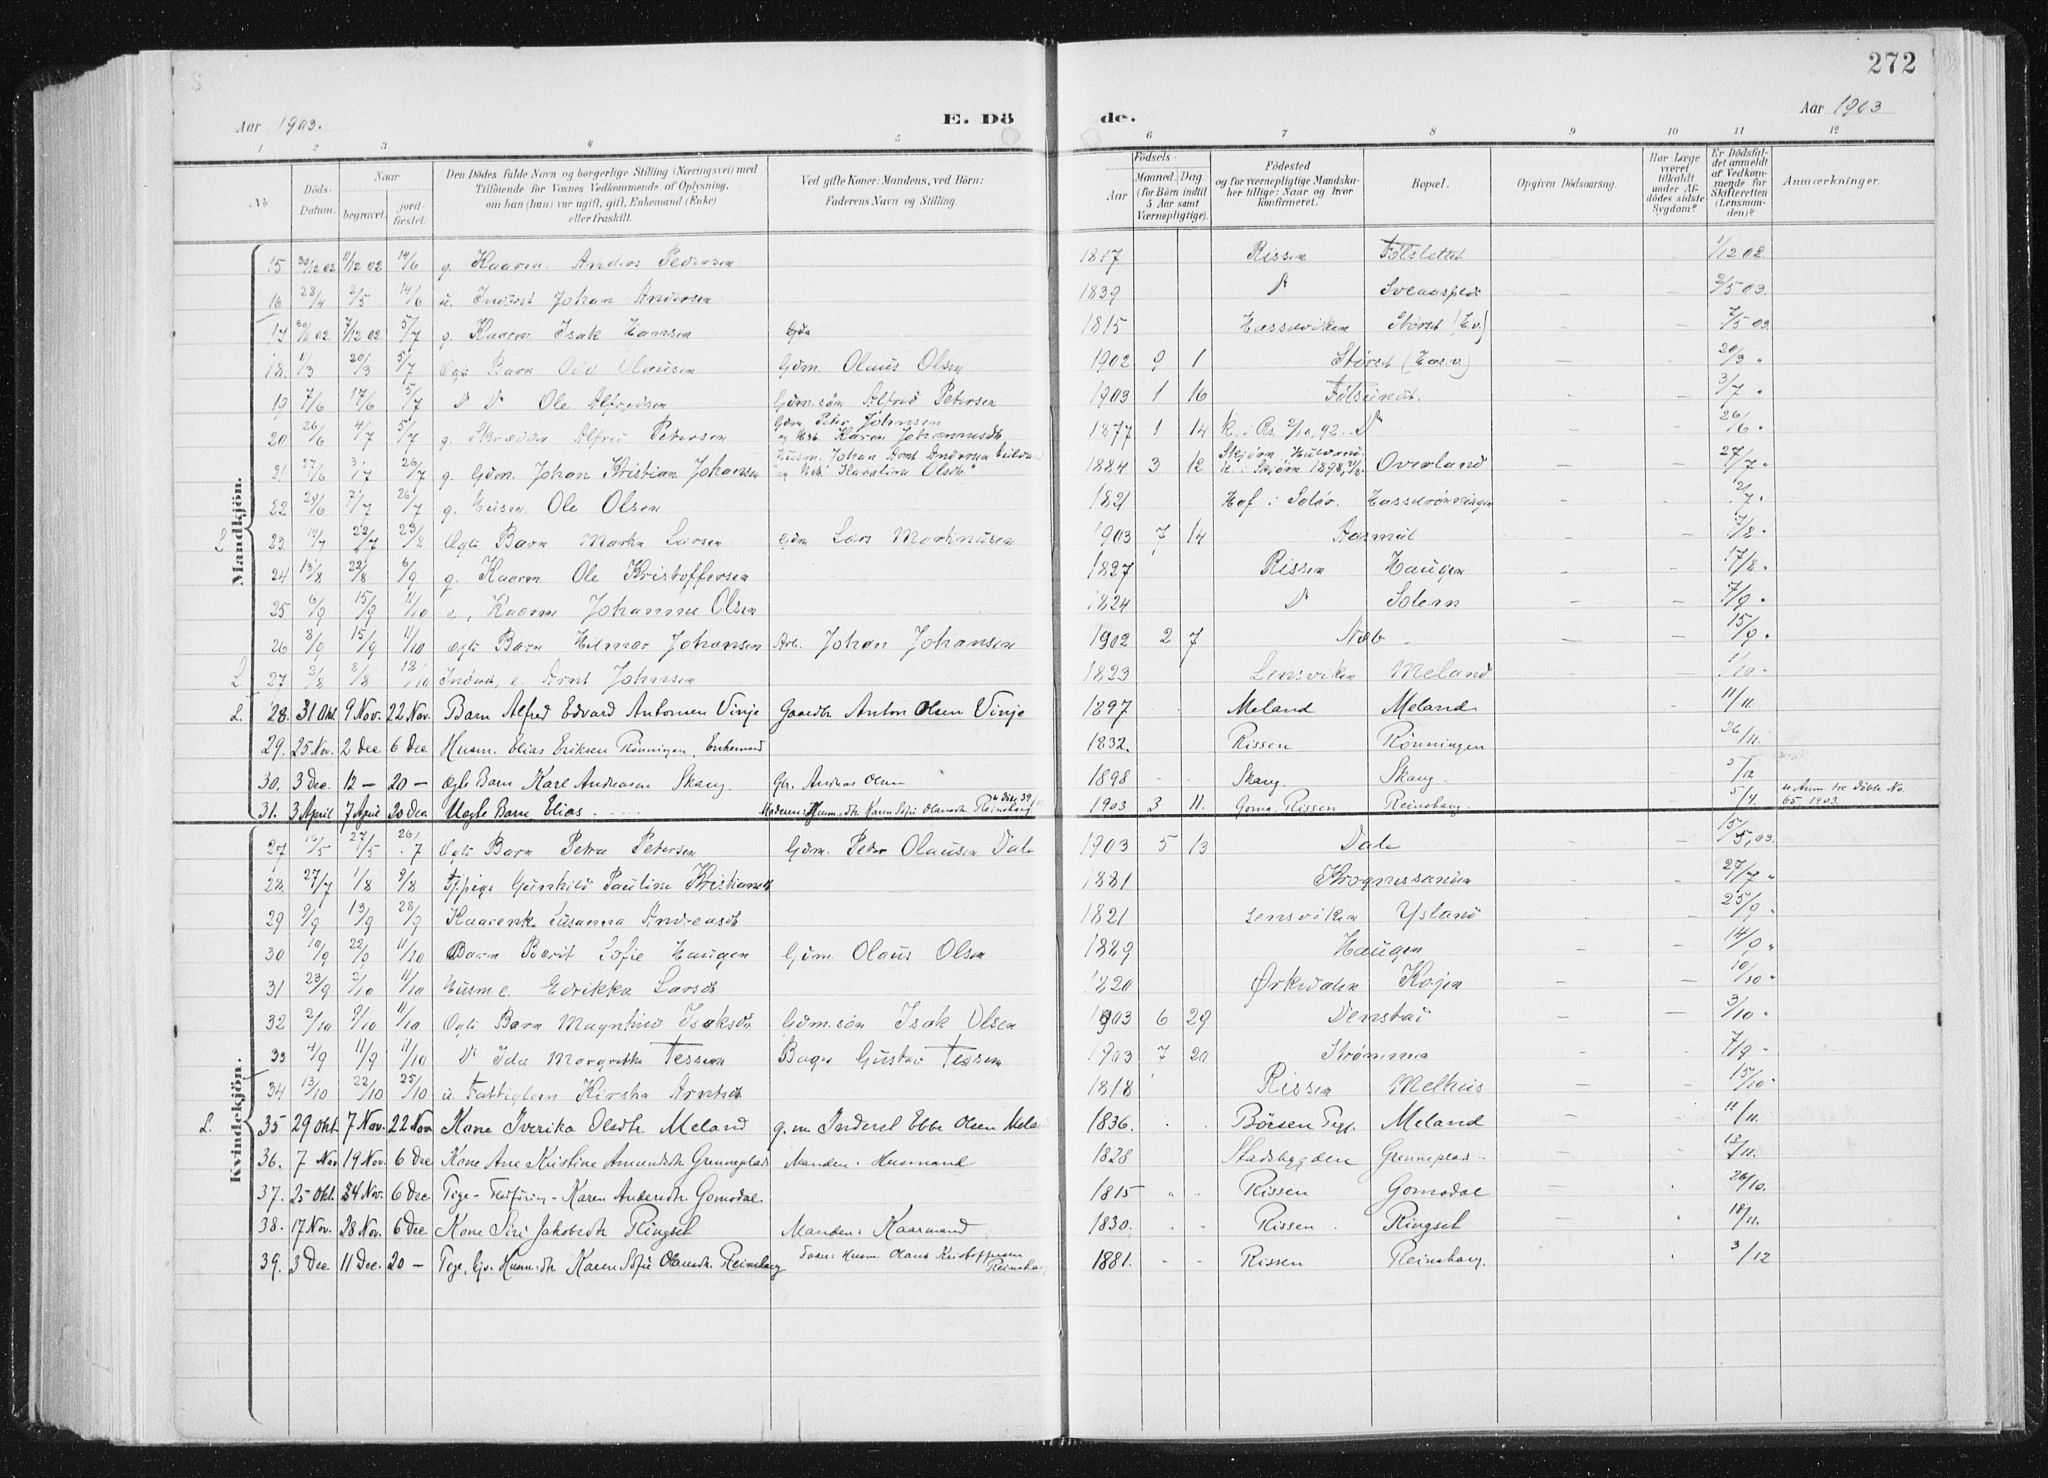 272
Aar 1903.
E. Dö
de.
Aar 1903
1 2 3 4 5 6 7 8 9 10 11 12
No
Döds-Datum.
Naar
begravet.
jord-fæstet.
Den Dödes fulde Navn og borgerlige Stilling (Næringsvei) med
Tilföiende for Voxnes Vedkommende af Oplysning,
om han (hun) var ugift, gift, Enkemand (Enke)
eller fraskilt.
Ved gifte Koner: Mandens, ved Börn:
Faderens Navn og Stilling.
Födsels-
Aar
Maaned.
Dag.
(for Börn indtil
5 Aar samt
Værnepligtige).
Födested
og for værnepligtige Mandska-
ber tillige: Naar og hvor
Konfirmeret.
Bopæl.
Opgiven Dödsaarsag.
Har Læge
været
tilkaldt
under Af-
dödes sidste
Sygdom?
Er Dödsfal-
det anmeldt
af Vedkom-
mende for
Skifteretten
(Lensman-
den)?
Anmærkninger.
Mandkjön.
15 30/12 02 11/12 02 14/6 g. Kaarm. Anders Pedersen 1817 Rissen 1/12 02.
16 28/4 2/5 14/6 u. Inderst Johan Andersen 1839 Do 2/5 03.
17 7/12 02 5/7 g. Kaarm. Isak Hansen 1815 Hasselviken Störset (H.v.) 7/5 03
18. 1/3 20/3 5/7 Ægte Barn Odd Olausen Gdm. Olaus Olsen 1902 9 1 Störset (Has.v.) 20/3 "
19 7/6 17/6 5/7 Do Do Ole Alfredsen Gdm.sön Alfred Petersen 1903 1 16 3/7 "
20 26/6 4/7 5/7 g. Skrædder Alfred Petersen Gdm Peter Johnsen og Hst. Karen Johannesdt. 1877 1 14 k. i Rs. 2/10 92. Do 26/6 "
21 27/6 3/7 26/7 g. Gdm. Johan Kristian Johansen Husm. Johan Arnt Andersen og Hst. Karolina Olsdt. 1884 3 12 Skjörn k. i Skjörn 1898 Overland 27/7 "
22 29/6 7/7 26/7 g. Husm Ole Olsen 1821 Hof i Solör. Hasselrönningen 2/7 "
L 23. 14/7 22/7 23/8 Ægte Barn Martin Larsen Gdm Lars Martinusen 1903 7 14 Aasmul 7/8 "
24 13/8 22/8 6/9 g. Kaarm Ole Kristoffersen 1827 Rissen Haugen 17/8 "
25 6/9 15/9 11/10 e. Kaarm Johannes Olsen 1824 Do Solem 7/9 "
26 8/9 15/9 11/10 Ægte Barn Hilmar Johansen Arb. Johan Johansen 1902 2 7 Næb 15/9 "
L 27 2/8 8/8 18/10 Inderst, e. Arnt Johnsen 1823 Lensviken Meland 1/10 "
L. 28. 31 Okt. 9 Nov. 22 Nov. Barn Alfred Edvard Antonsen Vinje Gaardbr Anton Olsen Vinje 1897 Meland Meland 11/11
29. 25 Nov. 2 Dec 6 Dec Husm. Elias Eriksen Rönningen, Enkemand 1832. Rissen Rönningen 26/11.
30. 3 Dec. 12 – 20 – Ægte Barn Karl Andreasen Skaug. Gbr. Andreas Olsen 1898 Skaug Skaug. 5/12
31. 3 April 7 April 20 Dec. Uægte Barn Elias Moderen: Husm.dtr Karen Sofie Olausdtr Reinshaug 1903 3 11. Rissen Reinshaug. 5/4 65 1903.
Kvindekjön.
27 13/5 27/5 26/7 Ægte Barn Petra Petersen Gdm. Peter Olausen Dale 1903 5 13 Dale 15/5 03.
28. 27/7 1/8 9/8 Tj.pige Gunhild Pauline Kristiansdt 1881 27/7 "
29 9/9 13/9 28/9 Kaarenke Susanna Andreasdt 1821 Lensviken Ysland 25/9 "
30 10/9 22/9 11/10 Barn Berit Sofie Haugen Gdm. Olaus Olsen 1889 Haugen 14/9 "
31 23/9 2/10 11/10 Husm e. Edrikka Larsdt 1820 Ørkedalen Kojen 10/10 "
32 2/10 9/10 11/10 Ægte Barn Magnhild Isaksdt Gdm.sön Isak Olsen 1903 6 29 Denstad 3/10 "
33 4/9 11/9 11/10 Do Ida Margrethe Tessem Bager Gustav Tessem 1903 7 20 Strömmen 7/9 "
34 13/10 22/10 25/10 u. Fattiglem Kirsten Arntsdt 1818 Rissen Melhus 15/10 "
L. 35 29 Okt. 7 Nov. 22 Nov Kone Iverika Olsdtr Meland g. m. Inderst Ebbe Olsen Meland 1836. Börsen Meland 11/11.
36. 7 Nov 19 Nov. 6 Dec Kone Ane Kristine Amundsdtr Grønneplads Manden: Husmand 1828 Stadsbygden Grønneplads 13/11.
37. 25 Okt. 24 Nov. 6 Dec Pige – Karen Andersdtr. Gomodal 1815 Rissen Gomodal 26/10.
38. 17 Nov. 28 Nov. 6 Dec Kone Siri Jakobsdtr Ringset Manden: Kaarmand 1830. Rissen Ringset 18/11.
39. 3 Dec. 11 Dec. 20 – Pige, Husm.dtr Karen Sofie Olausdtr. Reinshaug Faren: Husm Olaus Kristoffersen Reinshaug 1881. Rissen Reinshaug. 3/12